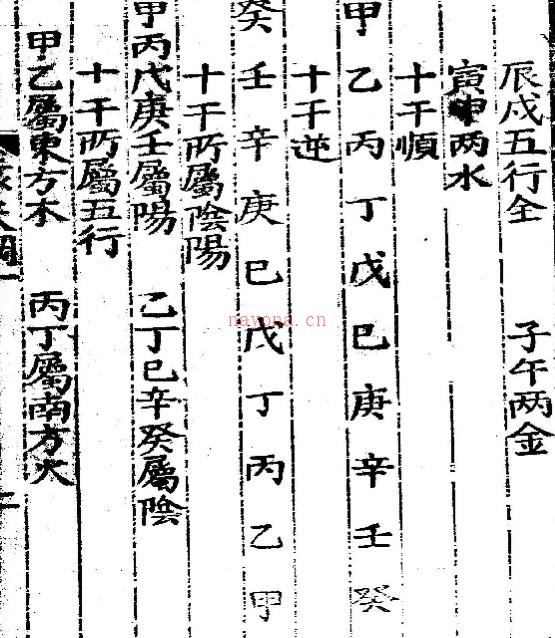 辰戌五行全 子午两金
寅申两水
十干順
甲乙丙丁戊巳庚辛壬癸
十干逆
癸壬辛庚巳戊丁丙乙甲
十干所屬陰陽
甲丙戊庚壬屬陽 乙丁巳辛癸屬陰
十干所屬五行
甲乙屬東方木 丙丁屬南方火
navona.cn